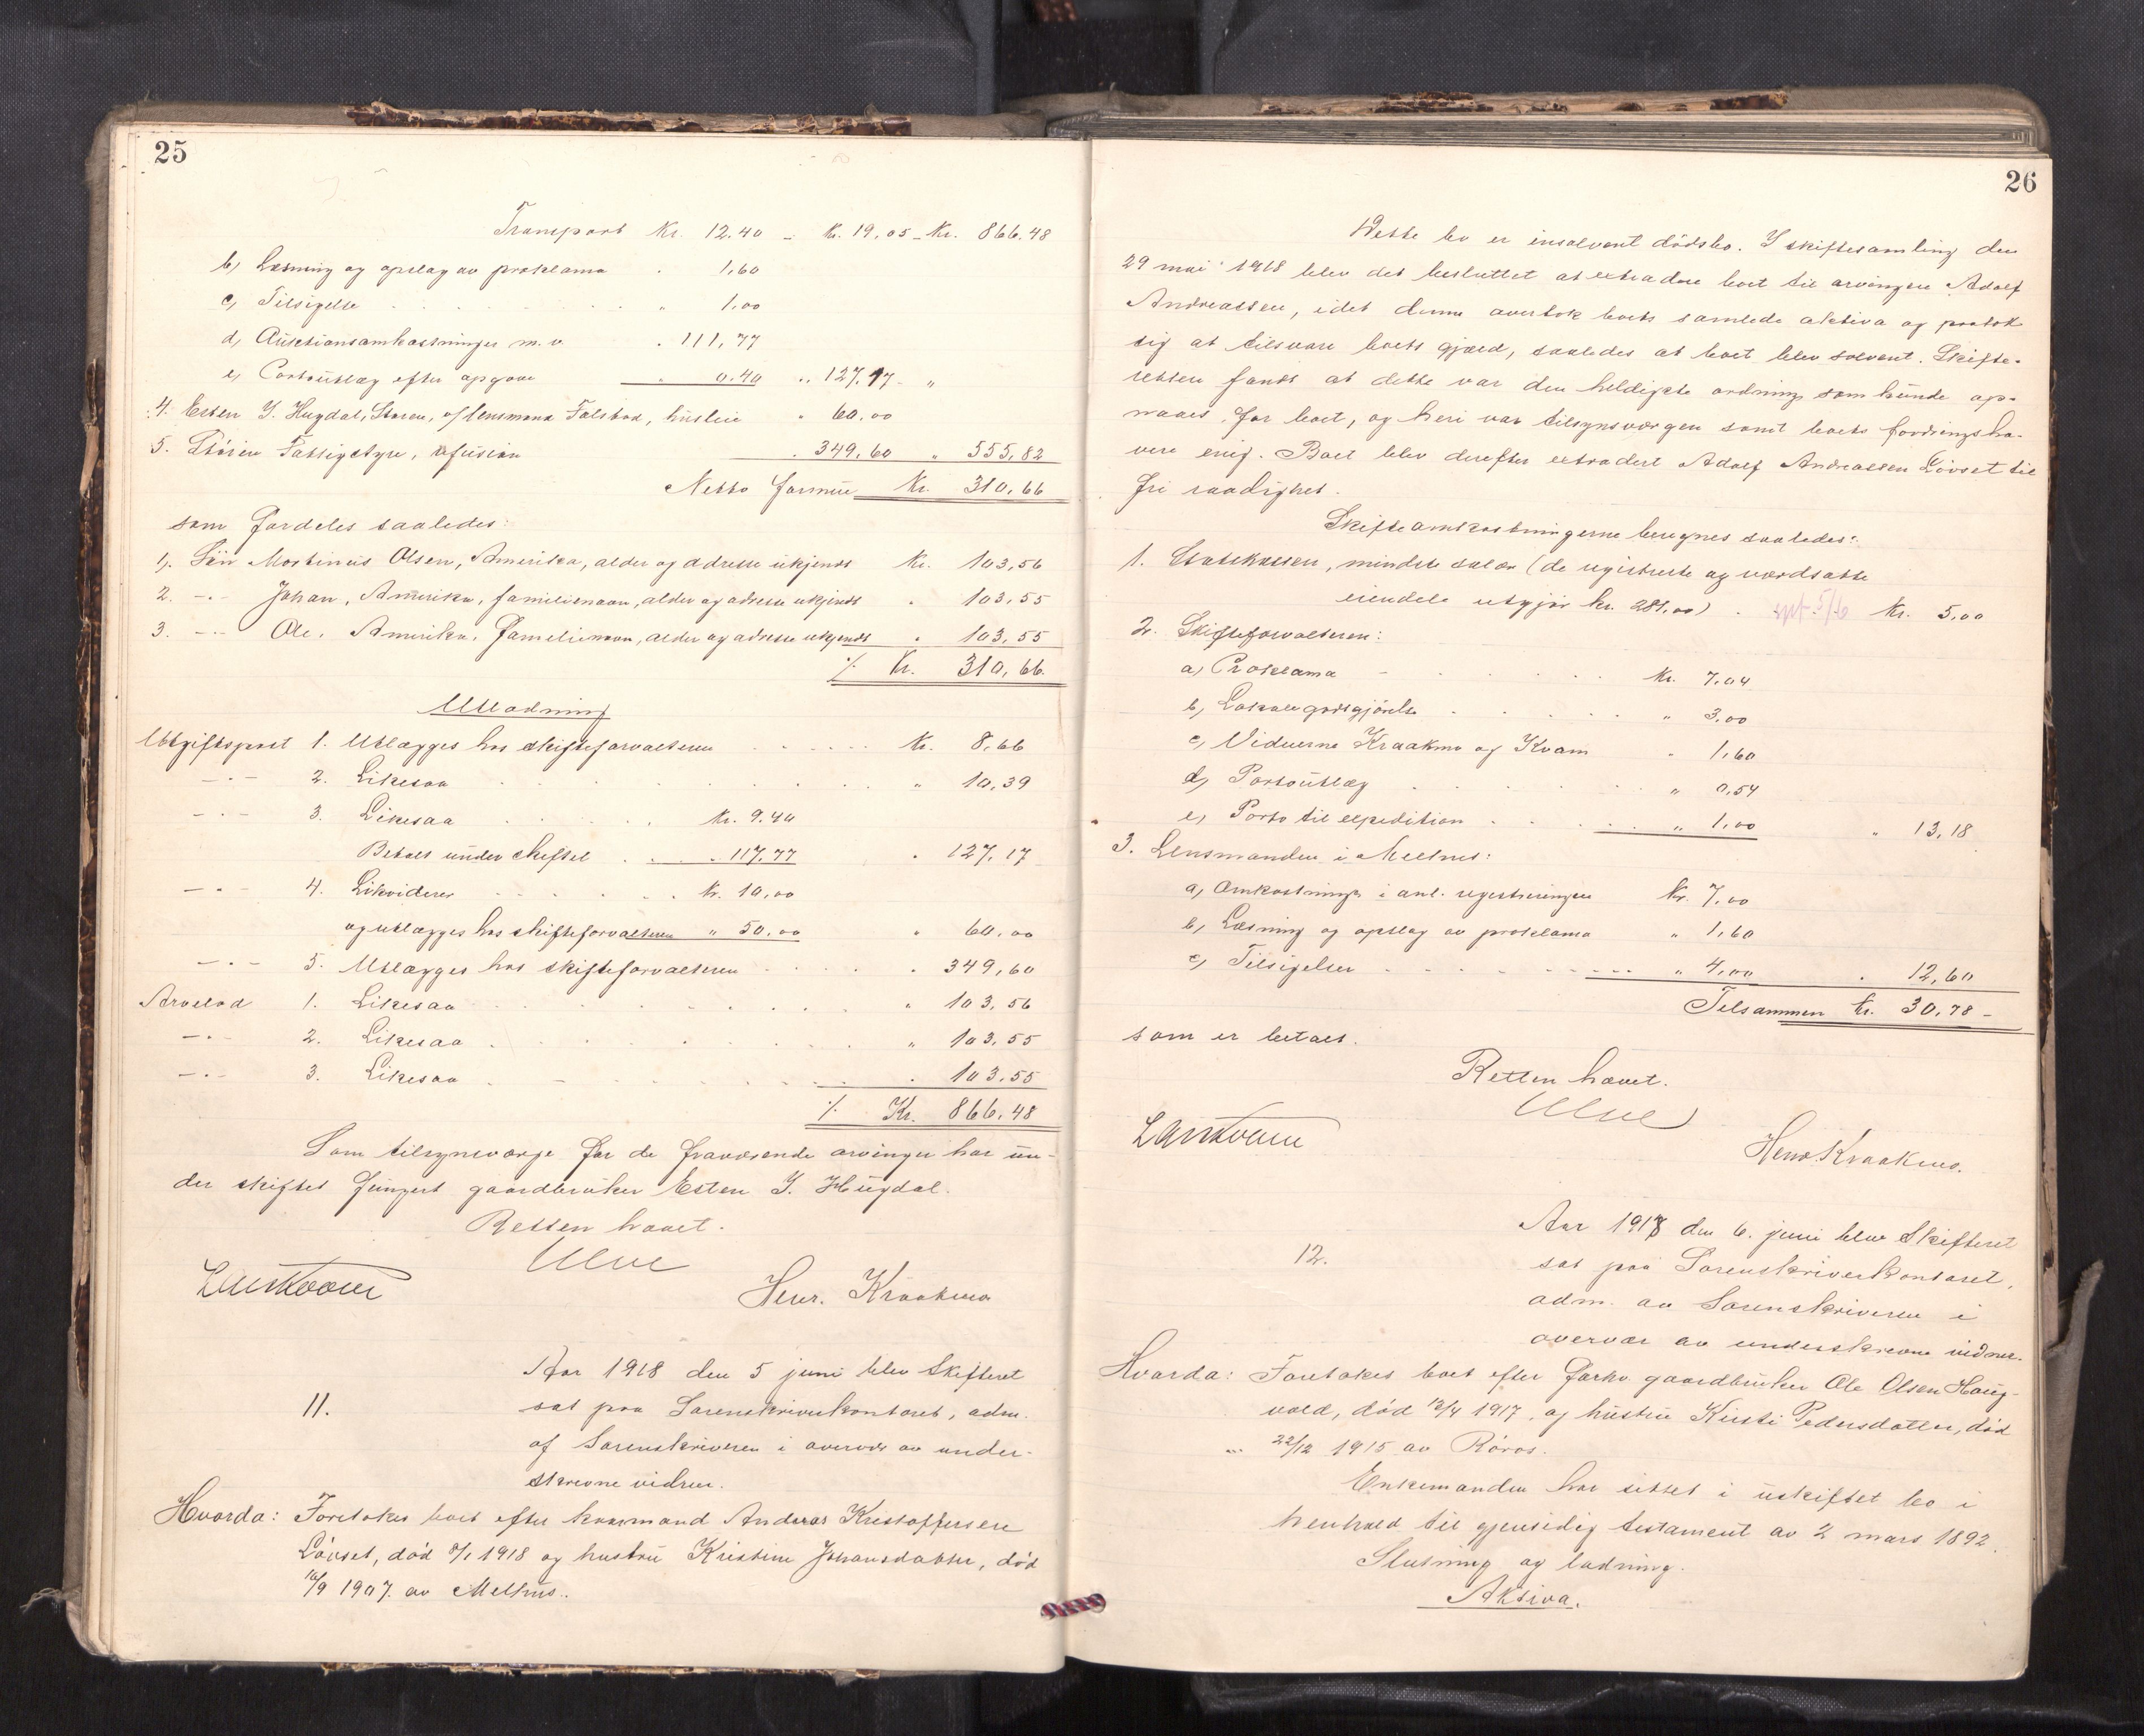 25
Transport Kr. 12.40 – Kr. 19.05 – Kr. 866.48
b, Læsning og opslag av proklama " 1,60
c, Tilsigelse " 1.00
d, Auktionsomkostninger m.v. " 111,77
e, Portoutlæg efter opgave " 0.40 " 127.17 "
4. Esten J. Hugdal, Støren, v/ lensmand Folstad, husleie " 60.00
5. Støren Fattigstyre, refusion " 349,60 " 555,82
Netto formue Kr. 310,66
som fordeles saaledes:
1, Søn Martinus Olsen, Amerika, alder og adresse ukjendt Kr. 103,56
2. –"– Johan, Amerika, familienavn, alder og adresse ukjendt " 103,55
3. –"– Ole, Amerika, familienavn, alder og adresse ukjendt " 103,55
% Kr. 310,66.
Utlodning
Utgiftspost 1. Utlægges hos skifteforvalteren Kr. 8,66
–"– 2. Likesaa " 10,39
–"– 3. Likesaa Kr. 9.40
Betalt under skiftet " 117.77 " 127,17
–"– 4. Likviderer Kr. 10,00
og utlægges hos skifteforvalteren " 50.00 " 60,00
–"– 5. Utlægges hos skifteforvalteren " 349,60
Arvelod 1. Likesaa " 103,56
–"– 2. Likesaa " 103,55
–"– 3. Likesaa " 103.55
% Kr. 866.48
Som tilsynsværge for de fraværende arvinger har un-
der skiftet fungert gaardbruker Esten J. Hugdal.
Retten hævet.
Ulve
Lars Kvam
Henr. Kraakmo
11.
Aar 1918 den 5 juni blev Skifteret
sat paa Sorenskriverkontoret, adm.
af Sorenskriveren i overvær av under-
skrevne vidner.
Hvorda: Foretokes boet efter kaarmand Anders Kristoffersen
Løvset, død 8/1 1918 og hustru Kristine Johansdatter, død
16/9 1907. av Melhus.
26
Dette bo er insolvent dødsbo. I skiftesamling den
29 mai 1918 blev det besluttet at extradere boet til arvingen Adolf
Andreassen, idet denne overtok boets samlede aktiva og paatok
sig at tilsvare boets gjæld, saaledes at boet blev solvent. Skifte-
retten fandt at dette var den heldigste ordning som kunde op-
naaes for boet, og heri var tilsynsværgen samt boets fordringsha-
vere enig. Boet blev derefter extradert Adolf Andreassen Løvset til
fri raadighet.
Skifteomkostningerne beregnes saaledes:
1. Statskassen, mindste salær (de registrerte og værdsatte
eiendele utgjør kr. 281.00) 5/6 Kr. 5,00
2. Skifteforvalteren:
a, Proklama Kr. 7.04
b, Lokalegodtgjørelse " 3.00
c, Vidnerne Kraakmo og Kvam " 1,60
d, Portoutlæg " 0,54
e, Porto til expedition " 1,00 " 13,18
3. Lensmanden i Melhus:
a, Omkostninger i anl. registreringen Kr. 7,00
b, Læsning og opslag av proklama " 1,60
c, Tilsigelser " 4,00 " 12,60
Tilsammen Kr. 30,78 –
som er betalt.
Retten hævet.
Ulve
Lars Kvam
Henr. Kraakmo.
12.
Aar 1918 den 6. juni blev Skifteret
sat paa Sorenskriverkontoret,
adm. av Sorenskriveren i
overvær av underskrevne vidner.
Hvorda: Foretokes boet efter forhv. gaardbruker Ole Olsen Haug-
vold, død 12/4 1917, og hustru Kirsti Pedersdatter, død
22/12 1915 av Røros.
Enkemanden har sittet i uskiftet bo i
henhold til gjensidig testament av 2 mars 1892.
Slutning og lodning.
Aktiva.